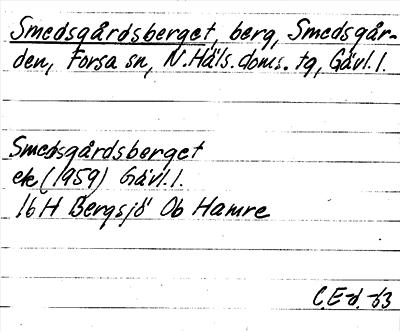 Smedsgårdsberget, berg, Smedsgår-
den, Forsa sn, N.Häls.doms.tg, Gävl.l.
Smedsgårdsberget
ek (1959) Gävl.l.
16H Bergsjö Ob Hamre
C.E-d.-63